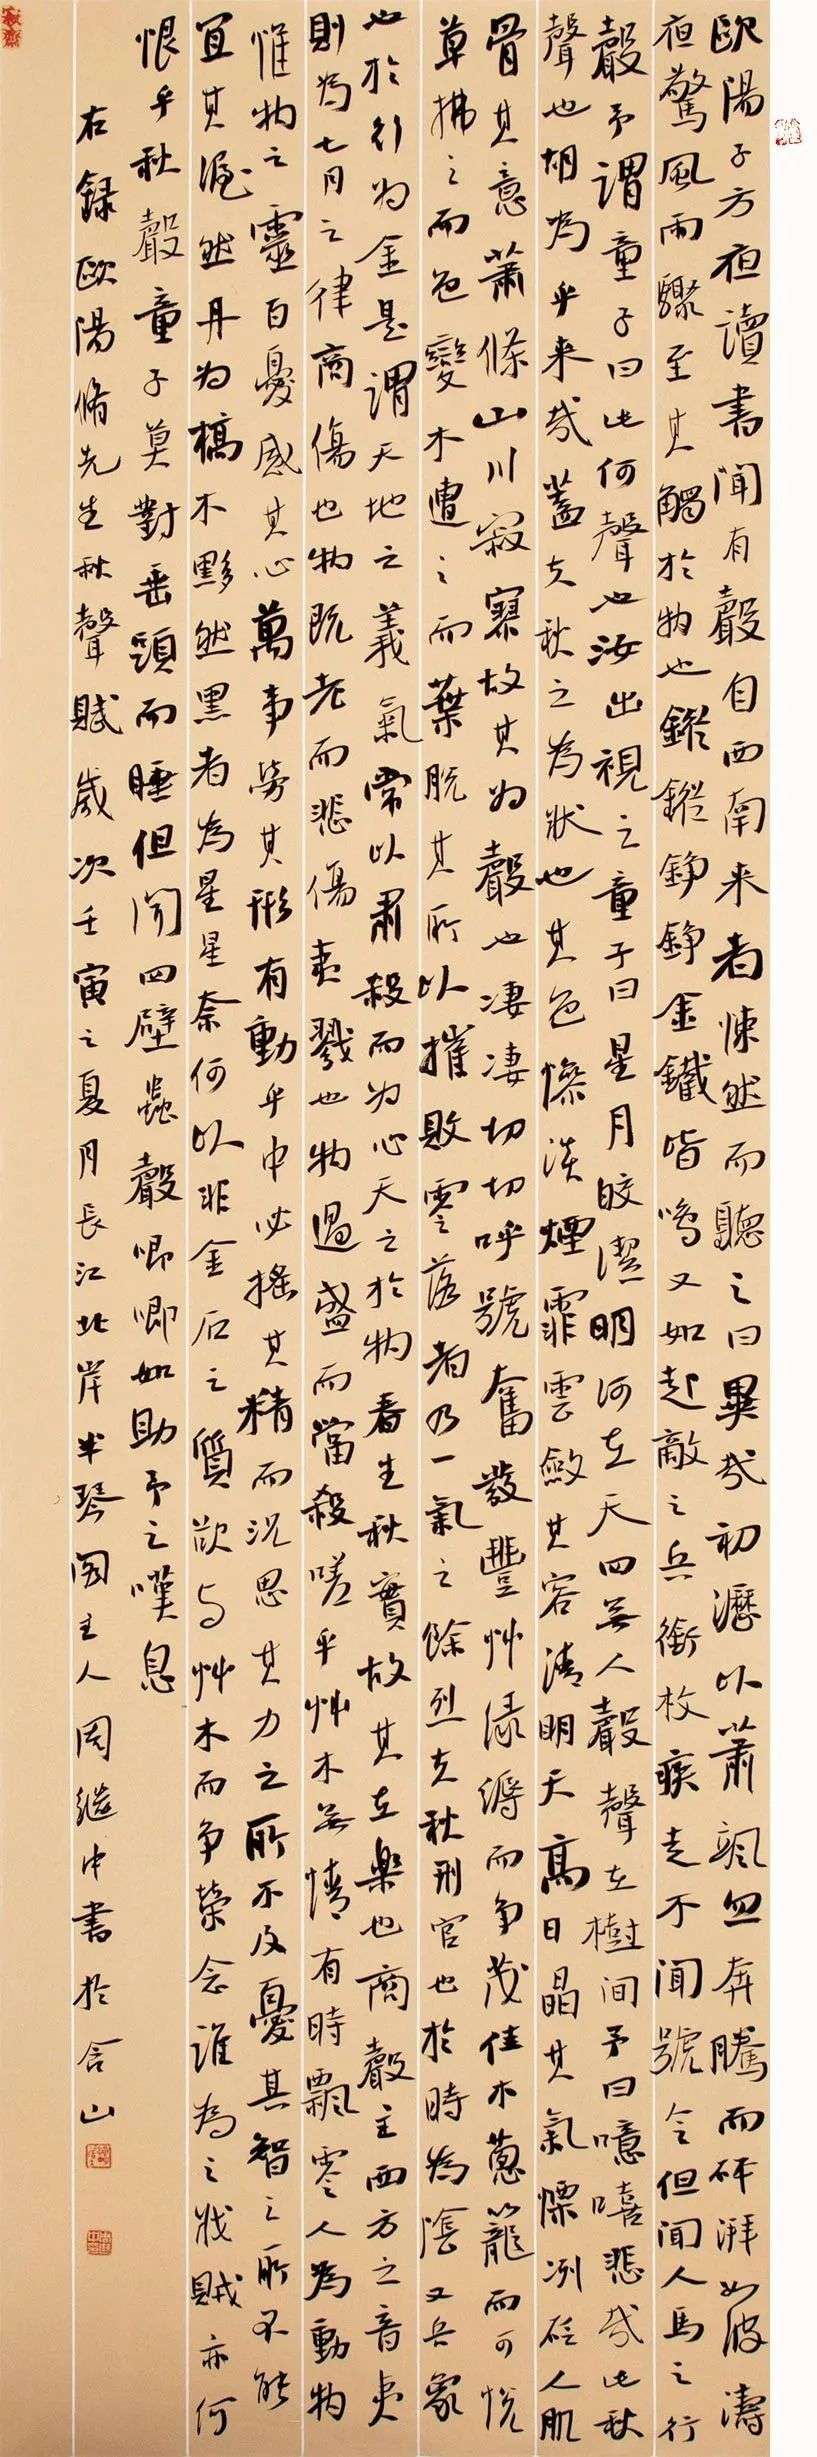 歐陽子方夜讀書聞有聲自西南来者悚然而聽之曰異哉初瀝以蕭颯忽奔騰而砰湃如波濤
夜驚風雨驟至其觸於物也鏦鏦錚錚金鐵皆鳴又如赴敵之兵銜枚疾走不聞號令但聞人馬之行
聲予謂童子曰此何聲也汝出視之童子曰星月皎潔明河在天四無人聲聲在樹間予曰噫嘻悲哉此秋
聲也胡為乎来哉蓋夫秋之為狀也其色慘淡煙霏雲斂其容清明天高日晶其氣慄冽砭人肌
骨其意蕭條山川寂寥故其为聲也凄凄切切呼號奮發豐艸綠縟而争茂佳木蔥籠而可悅
草拂之而色變木遭之而葉脫其所以摧敗零落者乃一氣之餘烈夫秋刑官也於時為陰又兵象
也於行为金是謂天地之義氣常以肅殺而为心天之於物春生秋實故其在樂也商聲主西方之音夷
則為七月之律商傷也物既老而悲傷夷戮也物過盛而當殺嗟乎艸木無情有時飄零人為動物
惟物之靈百憂感其心萬事勞其形有動乎中必搖其精而況思其力之所不及憂其智之所不能
宜其渥然丹为槁木黟然黑者為星星奈何以非金石之質欲与艸木而争榮念誰為之戕賊亦何
恨乎秋聲童子莫對垂頭而睡但聞四壁蟲聲唧唧如助予之嘆息
右録歐陽脩先生秋聲賦歲次壬寅之夏月長江北岸半琴閣主人周繼中書於含山